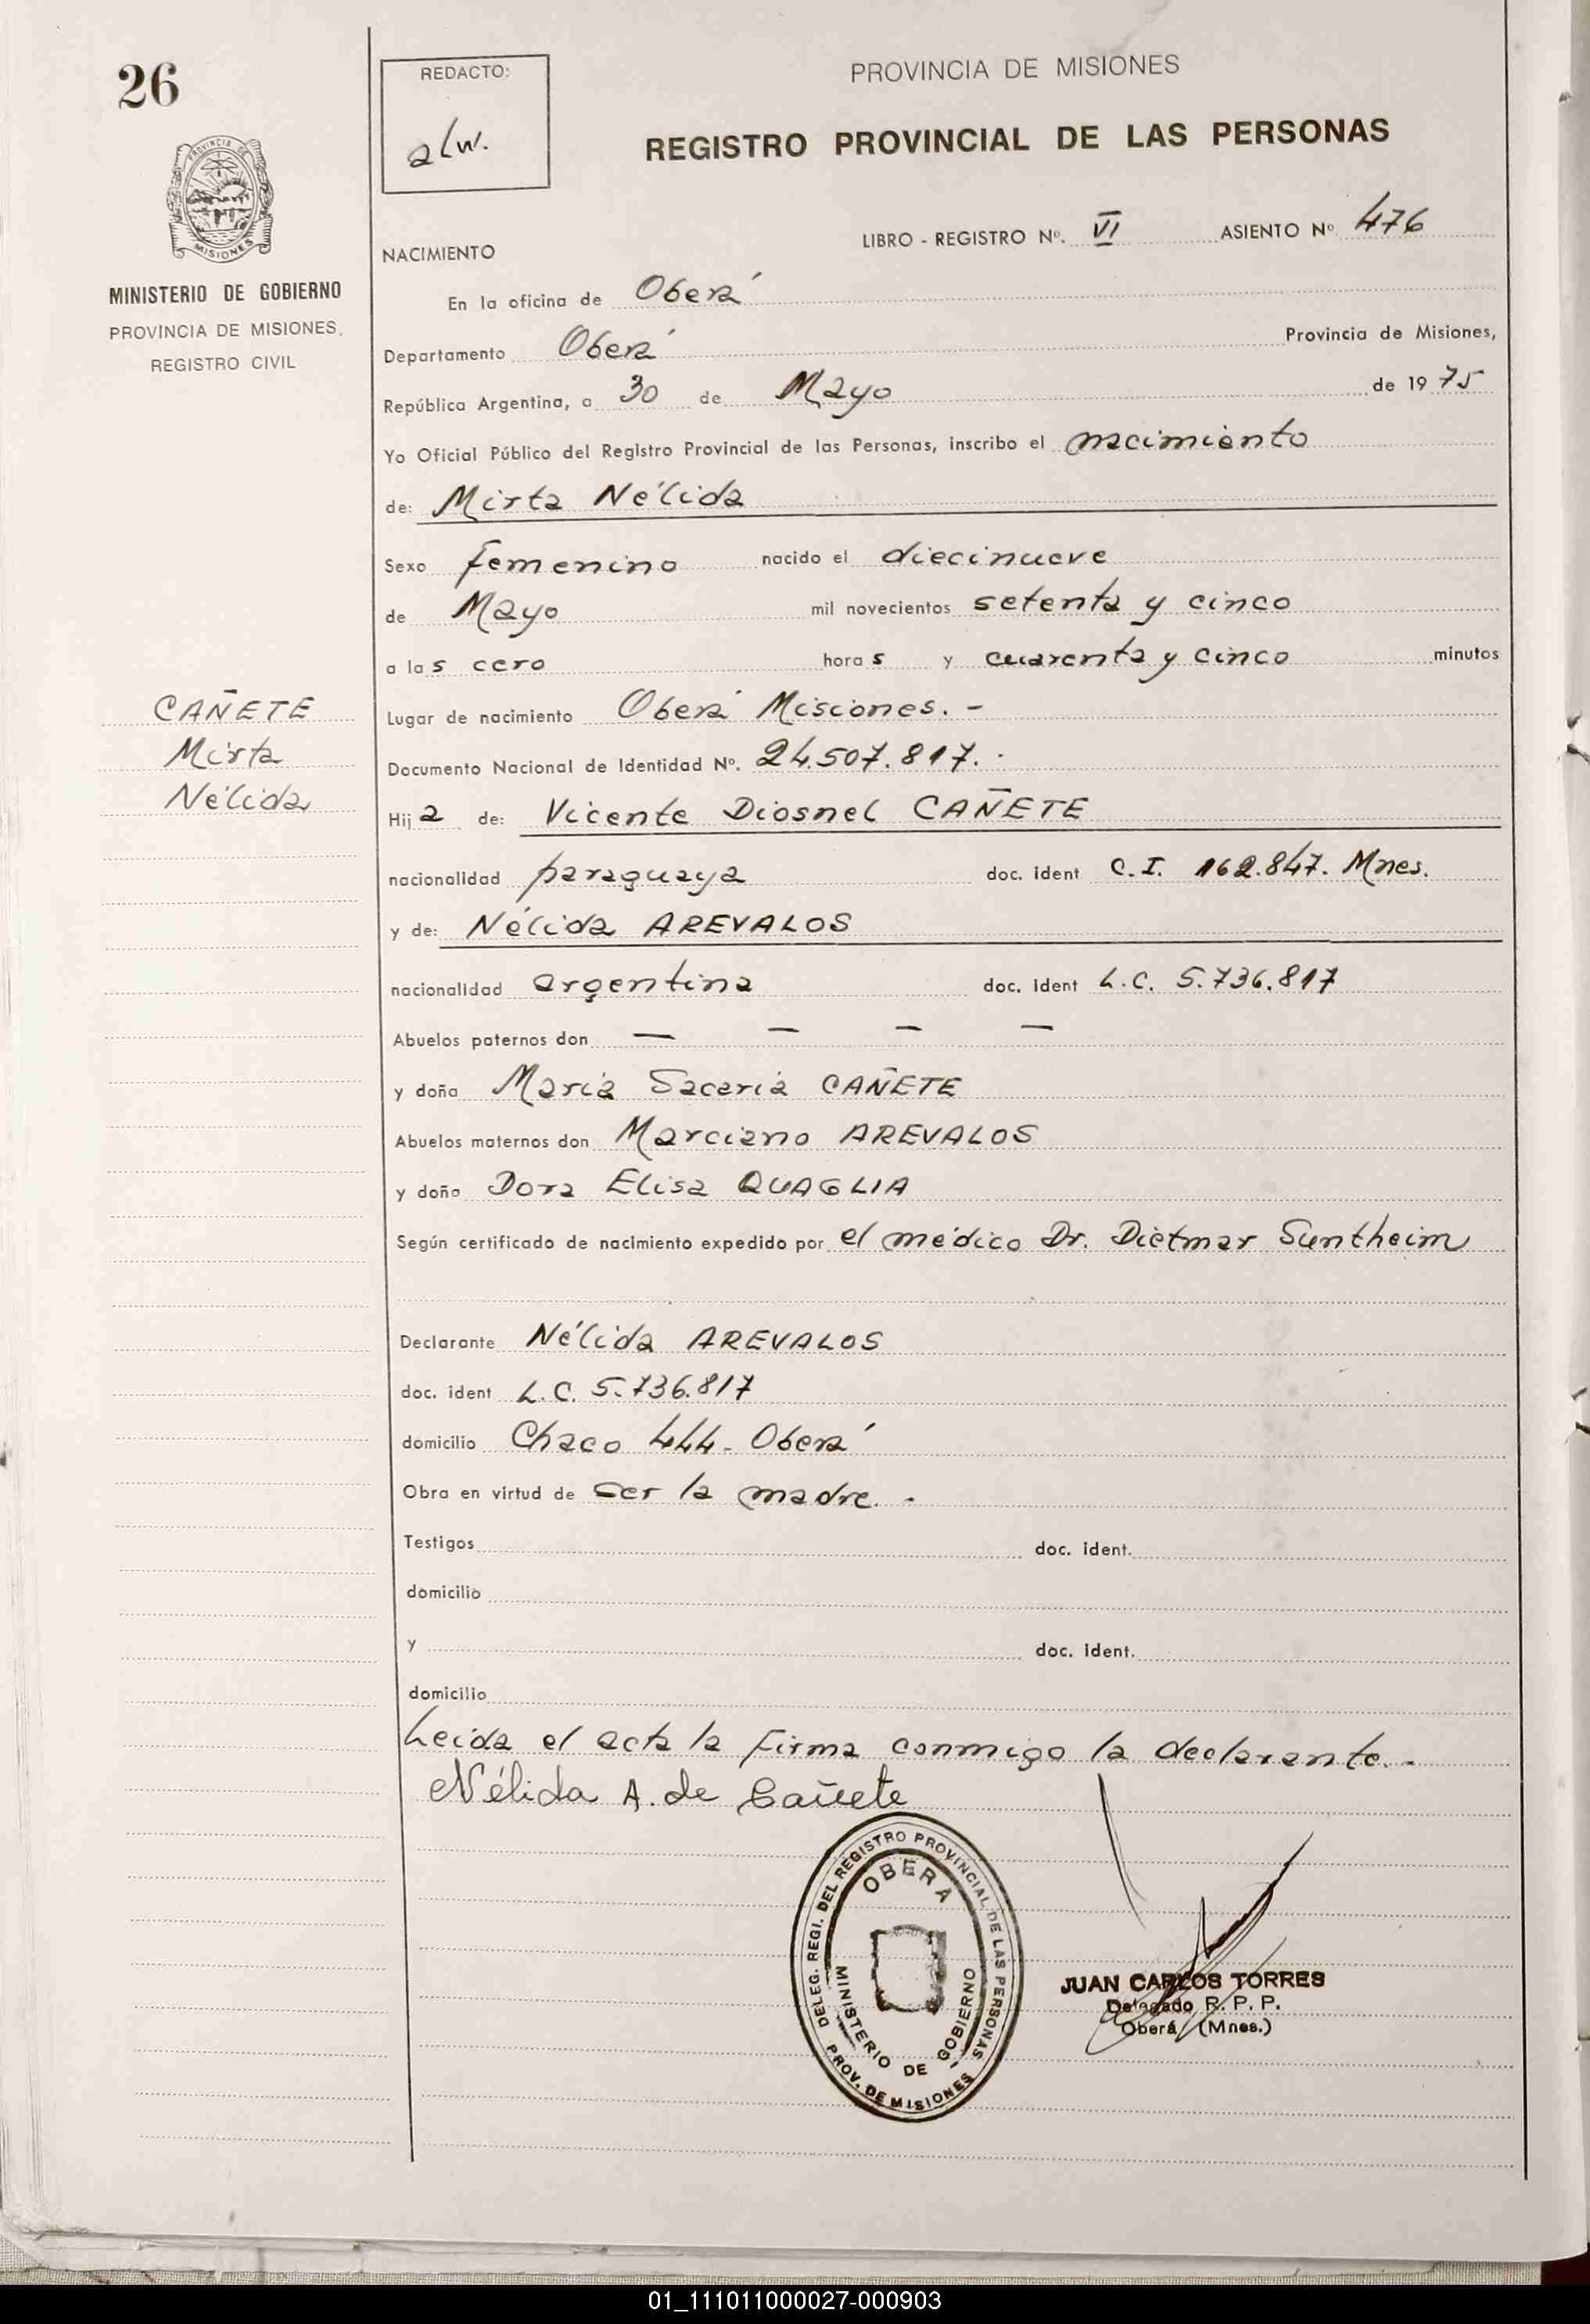 26
PROVINCIA DE MISIONES
MINISTERIO DE GOBIERNO
PROVINCIA DE MISIONES
REGISTRO CIVIL
REDACTO:
PROVINCIA DE MISIONES
REGISTRO PROVINCIAL DE LAS PERSONAS
LIBRO - REGISTRO Nº. VI ASIENTO Nº 476
NACIMIENTO
En la oficina de Oberá
Departamento Oberá Provincia de Misiones,
República Argentina, a 30 de Mayo de 1975
Yo Oficial Público del Registro Provincial de las Personas, inscribo el nacimiento
de: Mirta Nélida
Sexo femenino nacido el diecinueve
de Mayo mil novecientos setenta y cinco
a las cero horas y cuarenta y cinco minutos
CAÑETE
Mirta
Nélida
Lugar de nacimiento Oberá Misiones. -
Documento Nacional de Identidad Nº. 24.507.817. -
Hija de: Vicente Diosnel CAÑETE
nacionalidad paraguaya doc. ident C.I. 162.847. Mnes.
y de: Nélida AREVALOS
nacionalidad argentina doc. ident L.C. 5.736.817
Abuelos paternos don — — — —
y doña Maria Saceria CAÑETE
Abuelos maternos don Marciano AREVALOS
y doña Dora Elisa QUAGLIA
Según certificado de nacimiento expedido por el médico Dr. Dietmar Suntheim
Declarante Nélida AREVALOS
doc. ident L.C. 5.736.817
domicilio Chaco 444- Oberá
Obra en virtud de ser la madre. -
Testigos doc. ident.
domicilio
y doc. ident.
domicilio
Leida el acta la firma conmigo la declarante. -
Nélida A. de Cañete
DELEG. REGI. DEL REGISTRO PROVINCIAL DE LAS PERSONAS
OBERA
MINISTERIO DE GOBIERNO
PROV. DE MISIONES
JUAN CARLOS TORRES
Delegado R. P. P.
Oberá (Mnes.)
01_111011000027-000903